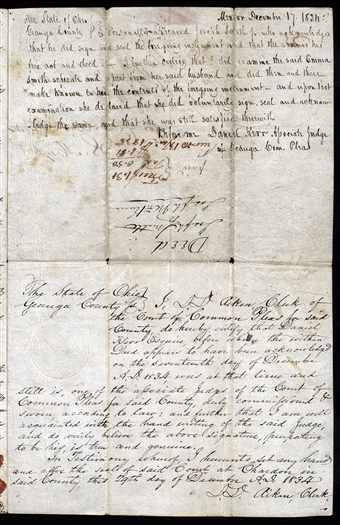 The State of Ohio Mentor December 17 1834
Geauga County SS Personally appeared Joseph Smith Jr who acknowledged
that he did sign and seal the foregoing instrument and that the same is his
free act and deed — I further certify that I did examine the said Emma
Smith separate and apart from her said husband and did then and there
make known to her the contents of the foregoing instrument — and upon that
examination she declared that she did voluntarily sign, seal and acknow-
ledge the same and that she was still satisfied therewith
Before me Daniel Kerr Associate Judge
in Geauga Com. Pleas
Deed
Joseph Smith
to
The State of Ohio
Geauga County SS I, D. D. Aiken Clerk of
the Court of Common Pleas for said
County, do hereby certify that Daniel
Kerr Esquire before whom the within
Deed appear to have been acknowledged
on the seventeenth day of December
A.D. 1834 was at that time and
still is, one of the associate judges of the Court of
Common Pleas for said County, duly commissioned &
sworn according to law: and further that I am well
acquainted with the hand writing of the said Judge,
and do verily believe the above signature, purporting
to be his, is true and genuine.
In Testimony whereof I hereunto set my hand
and affix the seal of said Court at Chardon in
said County this 29th day of December A.D. 1834
D. D. Aiken, Clerk